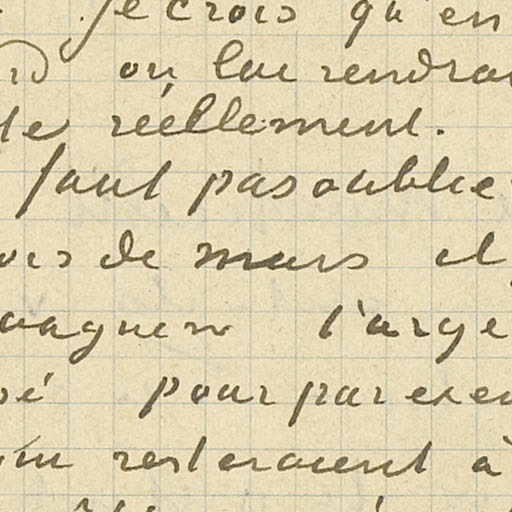 Je crois qu'en
on lui rendrai
te réellement.
faut pas oublie
ois de mars el
l'arge
pour par exem
resteraient à